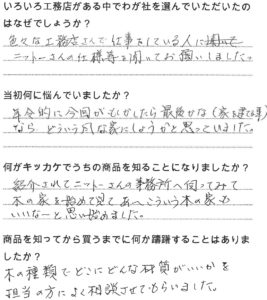 いろいろ工務店がある中でわが社を選んでいただいたの
はなぜでしょうか?
色々な工務店さんで仕事をしている人に
ニットーさんの仕様等を聞いてお願いしました。
当初何に悩んでいましたか?
年令的に今回がもしかしたら最後かな(家を建てる事)
なら どういう風な家にしようかと思っていました。
何がキッカケでうちの商品を知ることになりましたか?
紹介されてニットーさんの事務所へ伺ってみて
木の家を始めて見て あへこういう木の家も
いいなーと思い始めました。
商品を知ってから買うまでに何か躊躇することはありま
したか?
木の種類でどこにどんな材質がいいかを
担当の方によく相談させてもらいました。